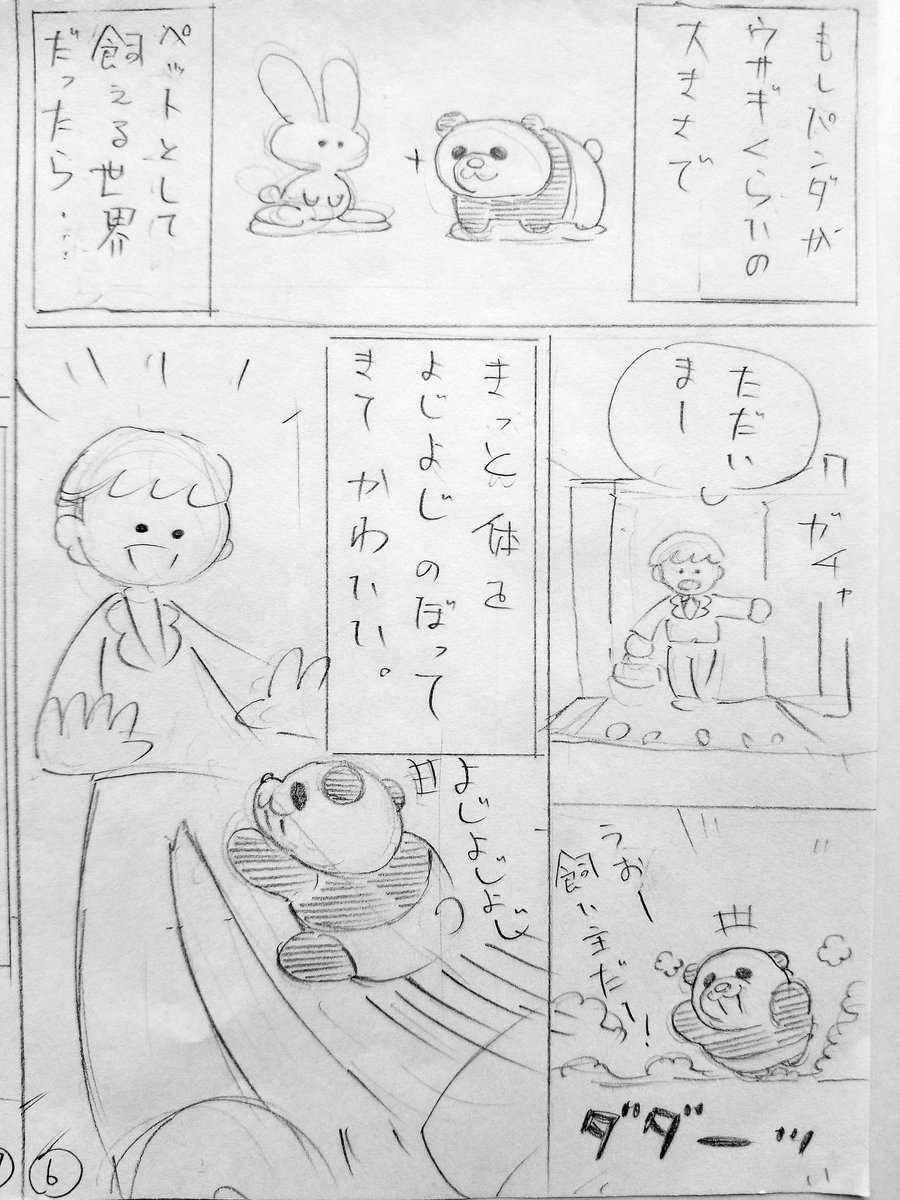 もしパンダが
ウサギくらいの
大きさで
ペットとして
飼える世界
だったら…
ただい
まー
ガチャ
うおー
飼い主だー!
ダダーッ
きっと体を
よじよじのぼって
きてかわいい。
よじよじよじ
6